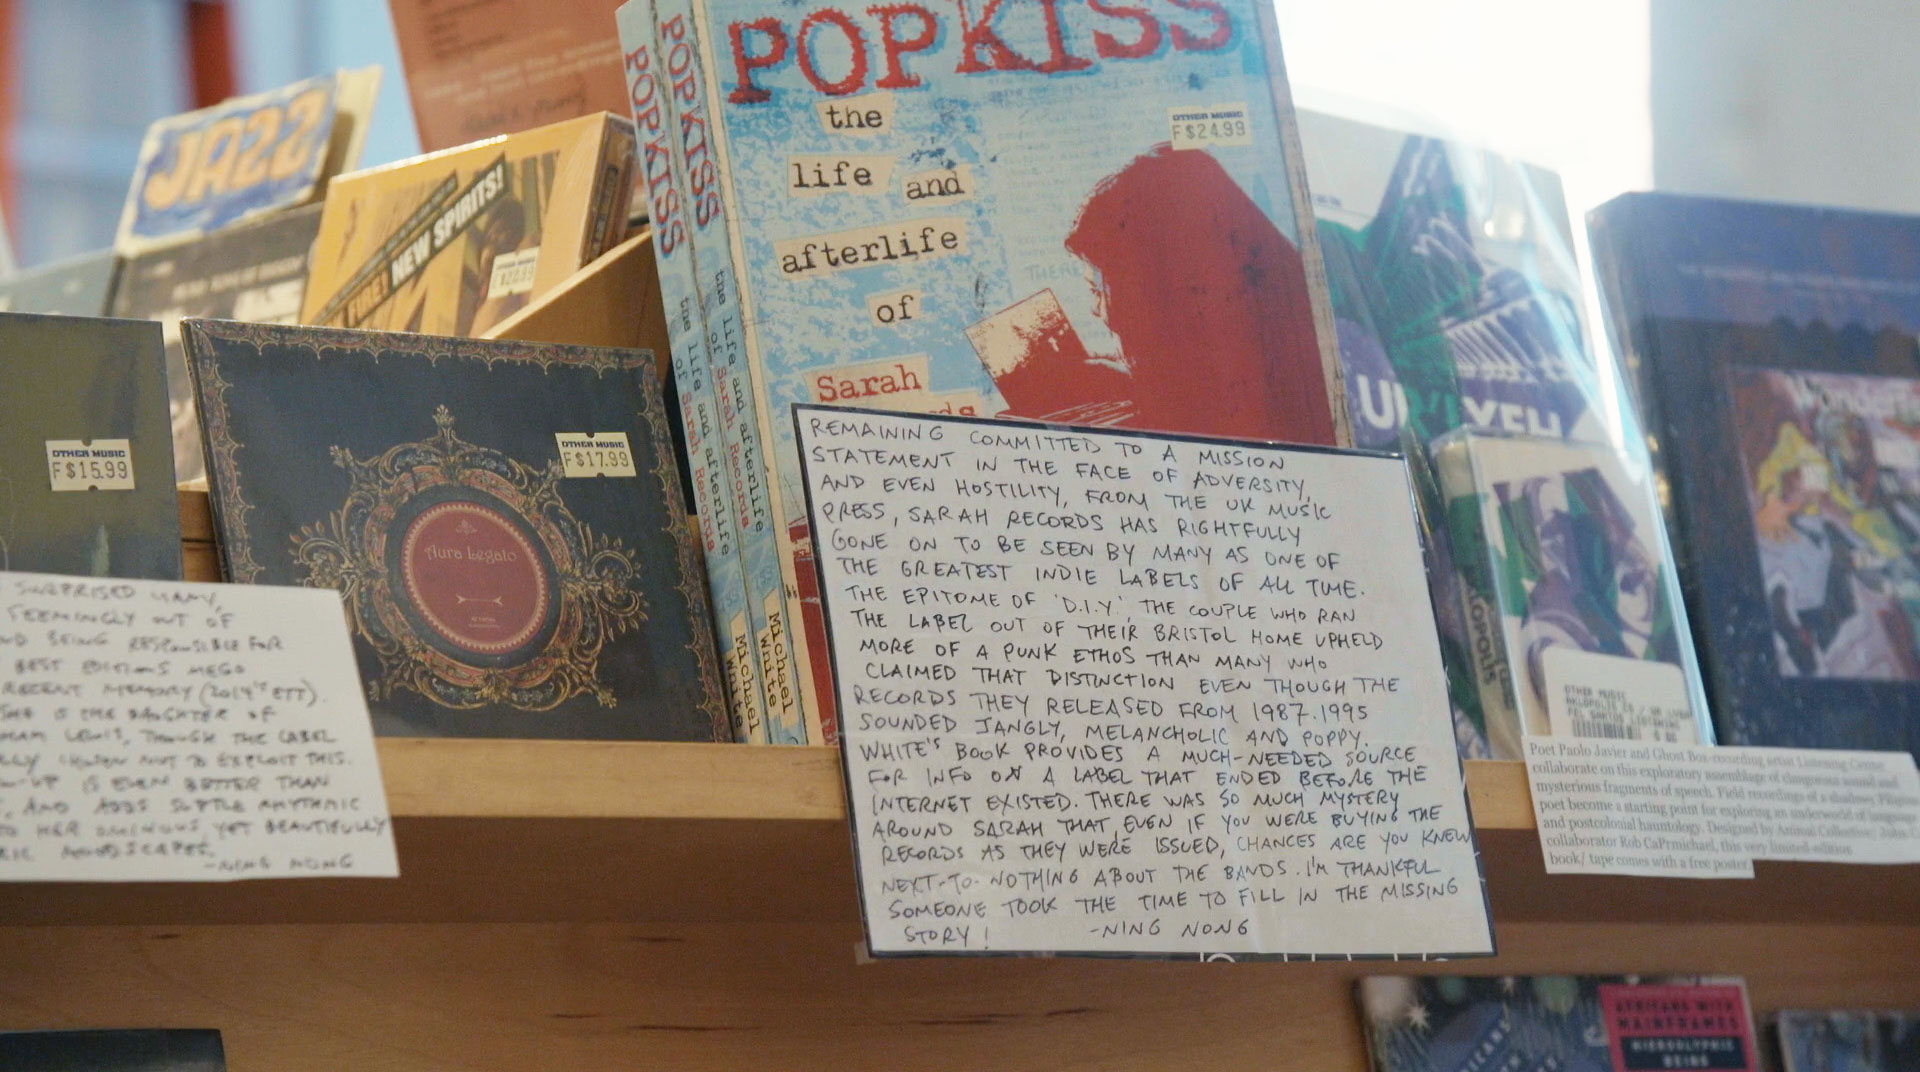 JAZZ
FIRE! NEW SPIRITS!
POPKISS
the
life and
afterlife
of
Sarah
OTHER MUSIC
F$24.99
POPKISS
the life and afterlife
of Sarah Records
Michael
White
POPKISS
the life and afterlife
of Sarah Records
Michael
White
OTHER MUSIC
F$15.99
OTHER MUSIC
F$17.99
Aura Legato
REMAINING COMMITTED TO A MISSION
STATEMENT IN THE FACE OF ADVERSITY,
AND EVEN HOSTILITY, FROM THE UK MUSIC
PRESS, SARAH RECORDS HAS RIGHTFULLY
GONE ON TO BE SEEN BY MANY AS ONE OF
THE GREATEST INDIE LABELS OF ALL TIME.
THE EPITOME OF 'D.I.Y.', THE COUPLE WHO RAN
THE LABEL OUT OF THEIR BRISTOL HOME UPHELD
MORE OF A PUNK ETHOS THAN MANY WHO
CLAIMED THAT DISTINCTION EVEN THOUGH THE
RECORDS THEY RELEASED FROM 1987-1995
SOUNDED JANGLY, MELANCHOLIC AND POPPY.
WHITE'S BOOK PROVIDES A MUCH-NEEDED SOURCE
FOR INFO ON A LABEL THAT ENDED BEFORE THE
INTERNET EXISTED. THERE WAS SO MUCH MYSTERY
AROUND SARAH THAT, EVEN IF YOU WERE BUYING THE
RECORDS AS THEY WERE ISSUED, CHANCES ARE YOU KNEW
NEXT-TO-NOTHING ABOUT THE BANDS. I'M THANKFUL
SOMEONE TOOK THE TIME TO FILL IN THE MISSING
STORY! -NING NONG
SURPRISED MANY,
SEEMINGLY OUT OF
BEING RESPONSIBLE FOR
BEST EDITIONS MEGO
RECENT MEMORY (2014'S ETT).
SHE IS THE DAUGHTER OF
LEWIS, THOUGH THE LABEL
CHOSEN NOT TO EXPLOIT THIS.
-UP IS EVEN BETTER THAN
, AND ADDS SUBTLE RHYTHMIC
TO HER OMINOUS, YET BEAUTIFULLY
MOODSCAPES.
-NING NONG
Poet Paolo Javier and Ghost Box-recording artist Listening Center
collaborate on this exploratory assemblage of clangorous sound and
mysterious fragments of speech. Field recordings of a shadowy Filipino
poet become a starting point for exploring an underworld of language
and postcolonial hauntology. Designed by Animal Collective
collaborator Rob Carmichael, this very limited-edition
book/ tape comes with a free poster
OTHER MUSIC
AFRICANS WITH
MAINFRAMES
HIEROGLYPHIC
BEING